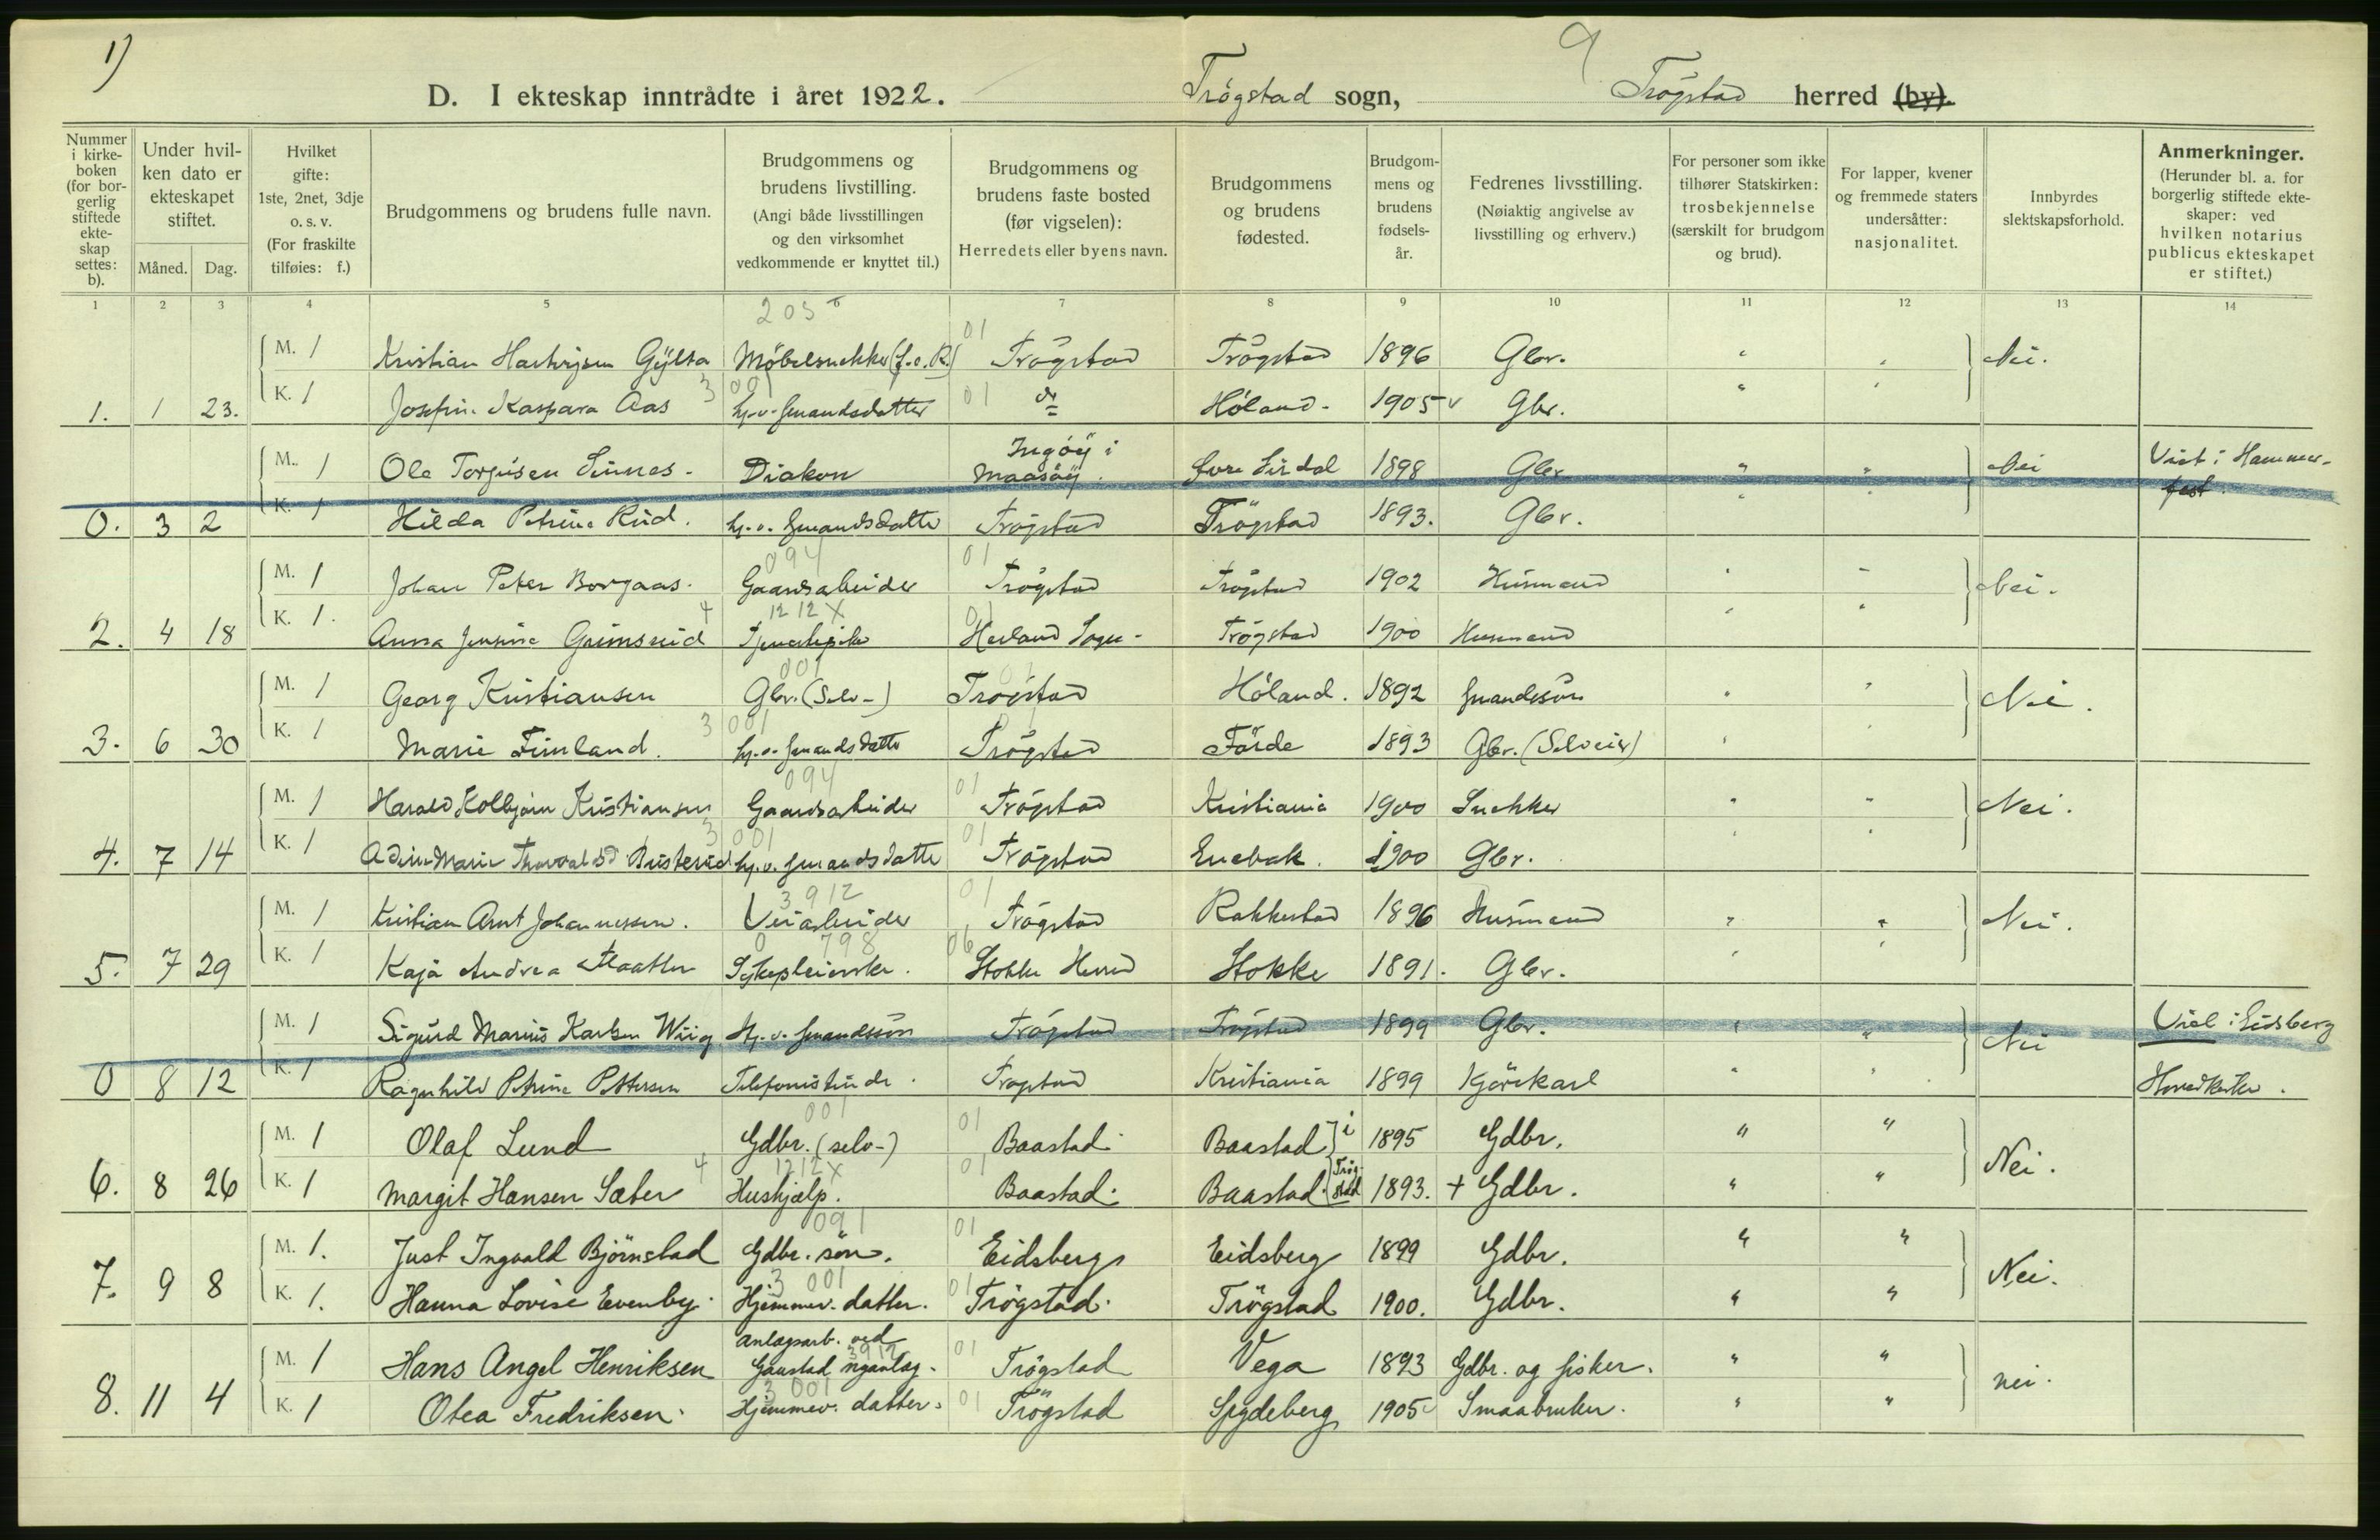 1)
9
D. I ekteskap inntrådte i året 1922. Trögstad sogn, Trögstad herred (by).
Nummer i kirkeboken (for borgerlig stiftede ekteskap settes: b).
Under hvilken dato er ekteskapet stiftet.
Måned. Dag.
Hvilket gifte: 1ste, 2net, 3dje o. s. v. (For fraskilte tilføies: f.)
Brudgommens og brudens fulle navn.
Brudgommens og brudens livstilling. (Angi både livsstillingen og den virksomhet vedkommende er knyttet til.)
Brudgommens og brudens faste bosted (før vigselen): Herredets eller byens navn.
Brudgommens og brudens fødested.
Brudgommens og brudens fødselsår.
Fedrenes livsstilling. (Nøiaktig angivelse av livsstilling og erhverv.)
For personer som ikke tilhører Statskirken: trosbekjennelse (særskilt for brudgom og brud).
For lapper, kvener og fremmede staters undersåtter: nasjonalitet.
Innbyrdes slektskapsforhold.
Anmerkninger. (Herunder bl. a. for borgerlig stiftede ekteskaper: ved hvilken notarius publicus ekteskapet er stiftet.)
1 2 3 4 5 6 7 8 9 10 11 12 13 14
205 01
M. 1 Kristian Gylta Möbelsnekker Trögstad Trögstad 1896 Gbr. " " Nei.
3 001 01
1. 1 23. K. 1 Josefine Kaspara Aas do Höland. 1905 v Gbr. "
Ingöy i
M. 1 Ole Torjusen Sinnes. Diakon Maasöy. Övre Sirdal 1898 Gbr. " " Nei Viet i Hammerfest.
0. 3 2 K. 1 Hilda Petrine Rud. Trögstad Trögstad 1893. Gbr. " "
094 01
M. 1 Johan Peter Borgaas. Gaardsarbeider Trögstad Trögstad 1902 Husmand " " Nei.
4 1212 X 01
2. 4 18 K. 1. Anna Grimsrud Tjenestepike Hærland Sogn. Trögstad 1900 Husmand " "
001 01
M. 1 Georg Kristiansen Gbr. (Selv-) Trögstad Höland. 1892 " " Nei.
3 001
3. 6 30 K. 1 Marie Fimland. Trögstad Förde 1893 Gbr. (Selveier) "
094 01
M. 1 Harald Kolbjørn Kristiansen Gaardsarbeider Trögstad Kristiania 1900 Snekker " " Nei.
3 001 01
4. 7 14 K. 1 Marie Thorvaldsd. Trögstad Enebak. 1900 Gbr. " "
3912 01
M. 1 Kristian Arnt Johannessen. Veiarbeider Trögstad Rakkestad 1896 Husmand " " Nei.
0 798 06
5. 7 29 K. 1 Kaja Andrea Sykepleierske. Stokke Herred Stokke 1891. Gbr. " "
M. 1 Sigurd Marius Karlsen Wiig Trögstad Trögstad 1899 Gbr. " " Nei Viet i Eidsberg
0 8 12 K. 1 Ragnhild Petrine Pettersen Telefonistinde. Trögstad Kristiania 1899 Kjörekarl " " Hovedkirke.
001 01
M. 1 Olaf Lund Gdbr. (selv-) Baastad. Baastad } i 1895 Gdbr. " " Nei.
4 1212 X 01
6. 8 26 K. 1 Margit Hansen Sæter Hushjælp. Baastad. Baastad. Trögstad 1893. + Gdbr. " "
091 01
M. 1. Just Ingvald Björnstad Gdbr. sön. Eidsberg Eidsberg 1899 Gdbr. " " Nei.
3 001 01
7. 9 8 K. 1. Hanna Lovise Evenby. Hjemmev. datter. Trögstad. Trögstad 1900. Gdbr. " "
Anlægsarb. ved
3912 01
M. 1 Hans Angel Henriksen Trögstad Vega 1893 Gdbr. og fisker. " " nei.
3 001 01
8. 11 4 K. 1 Otea Fredriksen. Hjemmev. datter. Trögstad Spydeberg 1905 v Smaabruker. " "